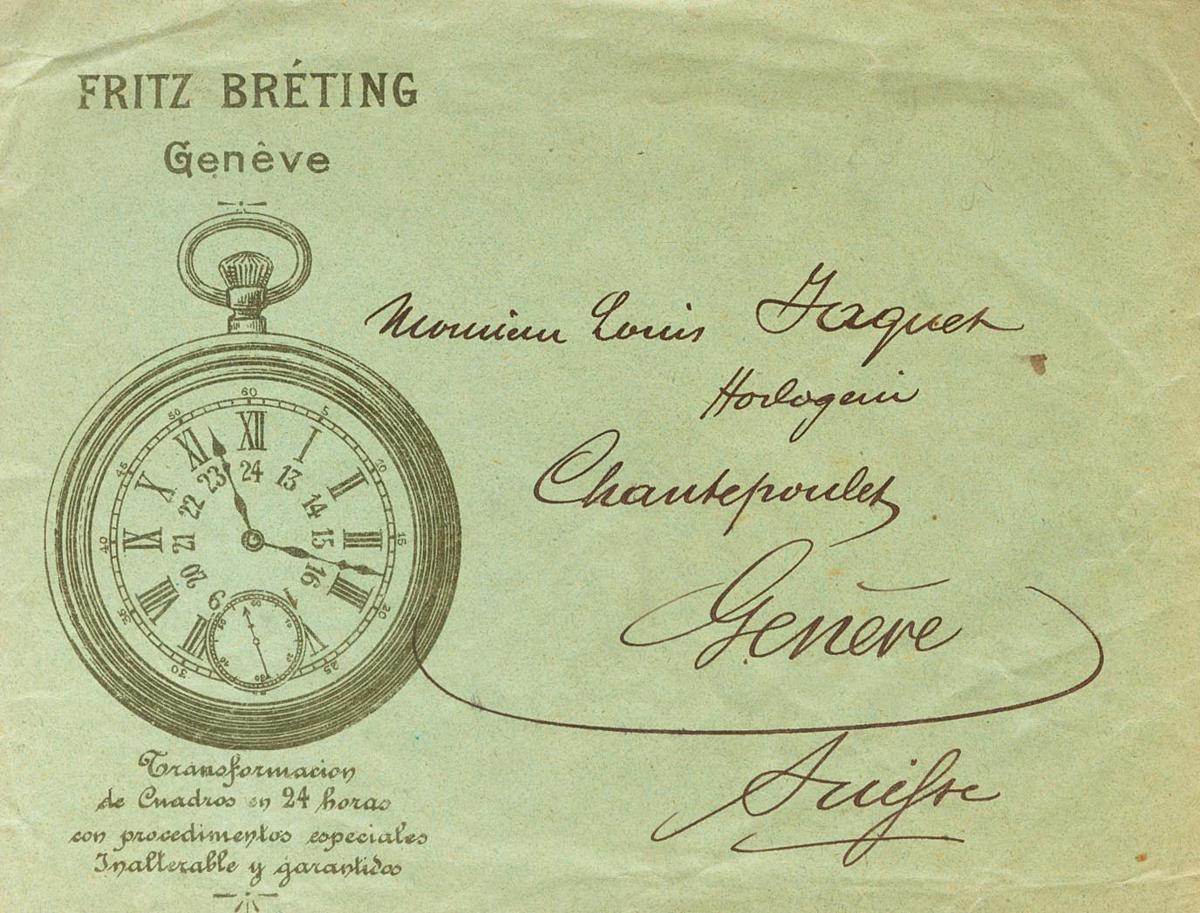 FRITZ BRÉTING
Genêve
Monsieur Louis Jaquet
Horlogerie
Chantepoulet
Genève
Suisse
60
5
10
15
20
25
30
35
40
45
50
XII
I
II
III
IIII
VII
VIII
IX
X
XI
24
13
14
15
16
20
21
22
23
Transformacion
de Cuadros en 24 horas
con procedimentos especiales
Inalterable y garantidos